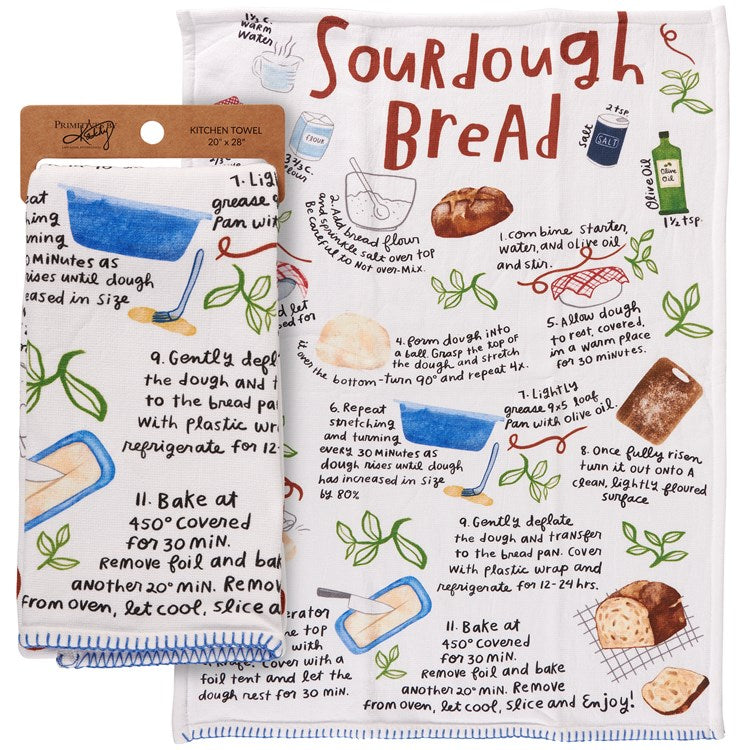 PRIMITIVES BY
Kathy
KITCHEN TOWEL
20" x 28"
7. Lig
grease 9
Pan with
eat
ching
rning
0 Minutes as
rises until dough
eased in Size
9. Gently defla
the dough and t
to the bread pa
With plastic wra
refrigerate for 12-
11. Bake at
450° covered
for 30 Min.
Remove foil and bak
another 20° Min. Remov
from oven, let cool, slice a
1½ c.
Warm
Water
Sourdough
Bread
2 tsp
Salt
SALT
FLOUR
3 ⅓ c.
flour
Olive Oil
Olive
Oil
1½ tsp.
2. Add bread flour
and sprinkle salt over top
Be careful to Not over-Mix.
1. Combine starter,
water, and olive oil
and stir.
d let
ped for
4. Form dough into
a ball. Grasp the top of
the dough and stretch
it over the bottom-turn 90° and repeat 4x.
5. Allow dough
to rest, covered,
in a warm place
for 30 minutes.
6. Repeat
stretching
and turning
every 30 Minutes as
dough rises until dough
has increased in Size
by 80%
7. Lightly
grease 9x5 loaf
Pan with olive oil.
8. Once fully risen
turn it out onto A
clean, lightly floured
surface
9. Gently deflate
the dough and transfer
to the bread pan. Cover
With plastic wrap and
refrigerate for 12-24 hrs.
erator
e top
with
Cover with a
foil tent and let the
dough rest for 30 Min.
11. Bake at
450° covered
for 30 Min.
Remove foil and bake
another 20° Min. Remove
from oven, let cool, slice and Enjoy!